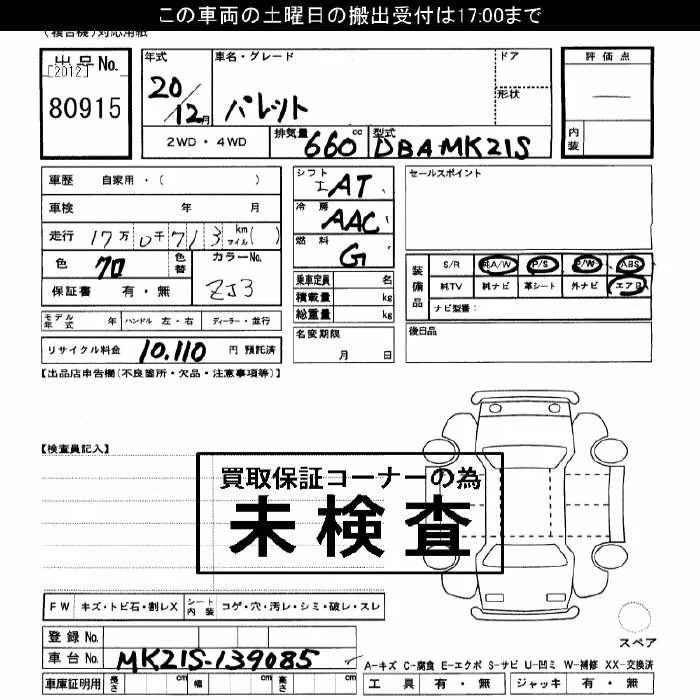 この車両の土曜日の搬出受付は17:00まで
(複合機)対応用紙
出品No.
[2012]
80915
年式
20/12月
車名・グレード
パレット
ドア
形状
評価点
内装
2WD・4WD
排気量 660 cc
型式 DBA-MK21S
車歴 自家用・( )
車検 年 月
走行 17万0千713 km マイル( )
色 クロ
色替
カラーNo. ZJ3
保証書 有・無
シフト AT
冷房 AAC
燃料 G
乗車定員 名
積載量 kg
総重量 kg
セールスポイント
装備品
S/R 純A/W P/S P/W ABS
純TV 純ナビ 革シート 外ナビ エアB
ナビ型番:
モデル年式 年 ハンドル 左・右 ディーラー・並行
名変期限 月 日
後日品
リサイクル料金 10,110 円 預託済
【出品店申告欄(不良箇所・欠品・注意事項等)】
【検査員記入】
買取保証コーナーの為
未検査
FW キズ・トビ石・割レX シート内装 コゲ・穴・汚レ・シミ・破レ・スレ
登録No.
車台No. MK21S-139085
スペア
車庫証明用 長さ cm 幅 cm 高さ cm
A-キズ C-腐食 E-エクボ S-サビ U-凹ミ W-補修 XX-交換済
工具 有・無 ジャッキ 有・無